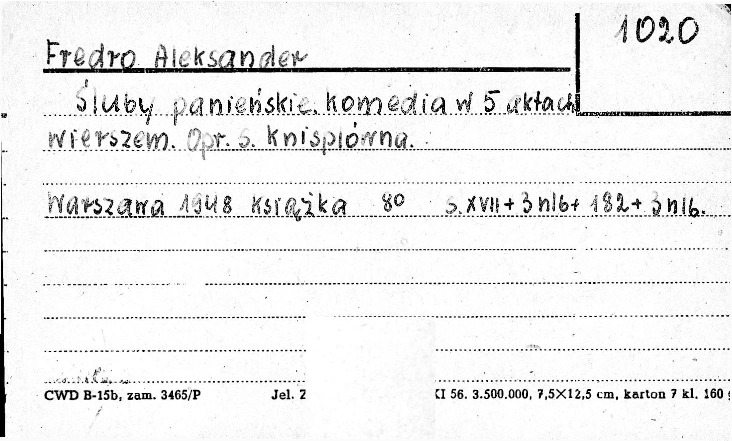 1020
Fredro Aleksander
Śluby panieńskie. Komedia w 5 aktach
wierszem. Opr. S. Knisplówna.
Warszawa 1948 Książka 8° s. XVII + 3 nlb + 182 + 3 nlb.
CWD B-15b, zam. 3465/P Jel. Z XI 56. 3.500.000, 7,5×12,5 cm, karton 7 kl. 160 g